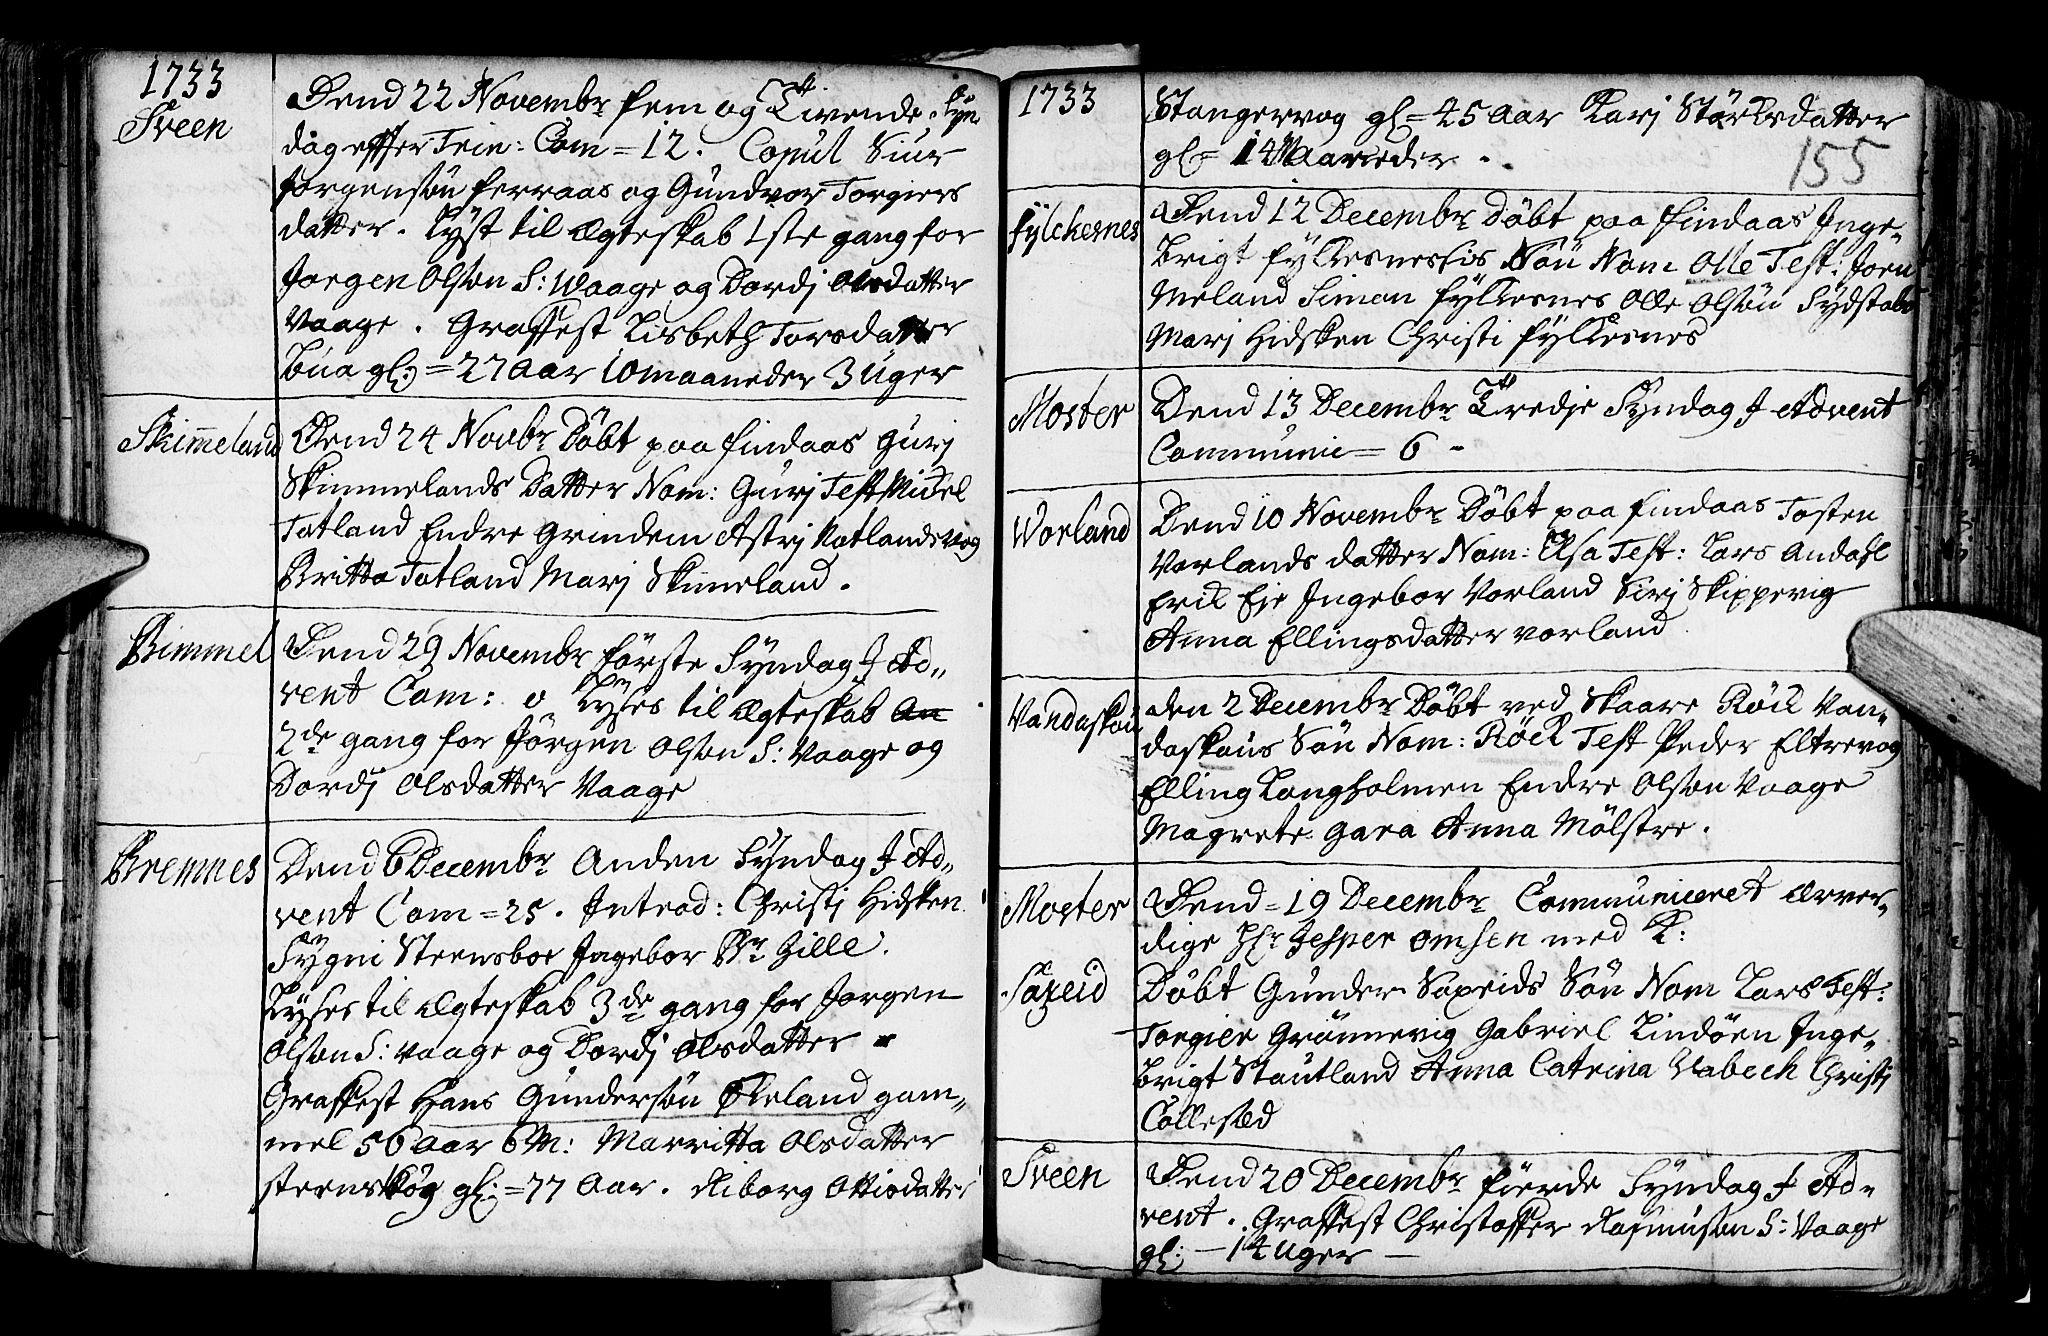 1733
Sveen
Dend 22 Novembr fem og Tivende Syn
dag effter Trin: Com = 12. Copul Siur
Jorgensøn ferraas og Gundvor Torgiers
datter. Lyst til Ægteskab 1ste gang for
Jorgen Olsøn S: Waage og Dordj Olsdatter
Vaage. Graffest Lisbeth Torsdatter
Bua gl: = 27 Aar 10 maaneder 3 Uger
Skimeland
Dend 24 Novbr Døbt paa findaas Gurj
Skimmelands Datter Nom: Gurj Test Mickel
Totland Endre Grindem Astrj Rotlandsvog
Britta Totland Marj Skimeland.
Bømmel
Dend 29 Novembr første Syndag J Ad„
vent Com: 0 Lyses til Ægteskab An
2de gang for Jörgen Olsøn S: Vaage og
Dordj Olsdatter Vaage
Bremnes
Dend 6 Decembr Anden Syndag J Ad„
vent Com = 25. Introd: Christj Hidsken
Sygni Steensboe Jngebor Gille.
Lyses til Ægteskab 3de gang for Jorgen
Olsøn S: Vaage og Dordj Olsdatter
Graffest Hans Gundersøn Økeland gam„
mel 56 Aar 6 M: Marritta Olsdatter
steenskog gl: = 77 Aar. Riborg Ottisdatter
1733
Stangervog gl = 45 Aar Karj Størkrdatter
gl =
155
fylckesnes
Dend 12 Decembr Døbt paa findaas Jnge„
brigt fylkesnesis Søn Nom Olle Test: Joen
Meland Simon fylkesnes Olle Olsøn Sydstabø
Marj Hidsken Christi fylkesnes
Moster
Dend 13 Decembr Tredje Syndag J Advent
Communic = 6 -
Worland
Dend 10 Novembr Døbt paa findaas Tosten
Vorlands datter Nom: Elsa Test: Lars Andahl
Erik Eje Jngebor Vorland Sirj Skippevig
Anna Ellingsdatter Vorland
Vandaskou
Den 2 Decembr Døbt ved Skaare Röck Van„
daskous Søn Nom: Röck Test Peder Eltrevog
Elling Langholmen Endre Olsøn Vaage
Magrete Gara Anna Mölstre.
Moster
Dend = 19 Decembr Communiceret Ærver„
dige Hr Jesper Omsen med K:
Saxeid
Døbt Gunder Saxeids Søn Nom Lars Test:
Torgier Grønnevig Gabriel Lindøen Jnge„
brigt Stautland Anna Catrina Vabech Christj
Collesæd
Sveen
Dend 20 Decembr fierde Syndag J Ad„
vent. Graffest Christoffer Rasmusøn S: Vaage
gl: — 14 Uger —